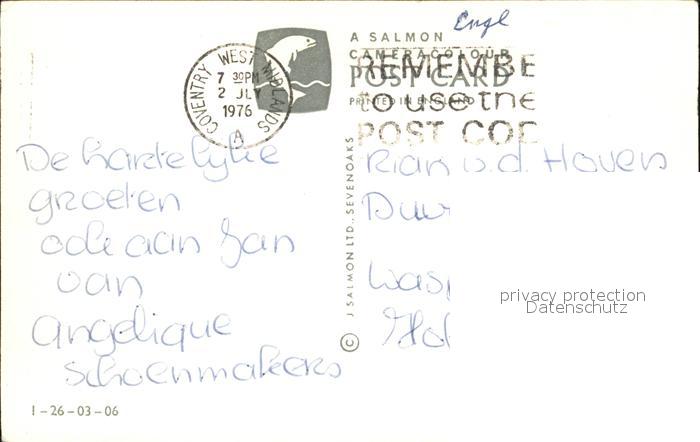 Engl
A SALMON
CAMERACOLOUR
POST CARD
PRINTED IN ENGLAND
COVENTRY WEST MIDLANDS
7 30PM
2 JLY
1976
A
REMEMBE
to use the
POST COD
De hartelijke
groeten
ook aan Jan
van
Angelique
Schoenmakers
© J SALMON LTD., SEVENOAKS
Rian v.d. Hoven
Duu
Wasp
Hol
privacy protection
Datenschutz
1-26-03-06